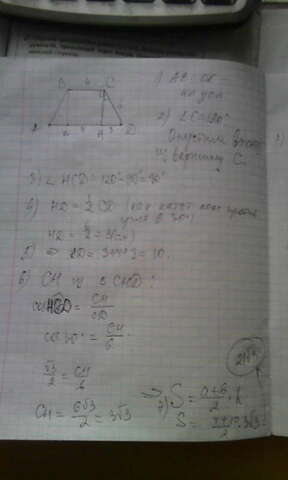 B 4 C
A H D
1) AB = CD =
по усл
2) ∠C = 120°
Опустим высоту
из вершины C.
3) ∠HCD = 120° - 90° = 30°
4) HD = 1/2 CD (как катет леж против
угла в 30°)
HD = 6/2 = 3(см)
5) ⇒ AD = 3+4+3 = 10.
6) CH из △CHD:
cosHCD = CH/CD
cos 30° = CH/6
√3/2 = CH/6
CH = 6√3/2 = 3√3
21√3
⇒ 7) S = a+b/2 · h
S = 4+10/2 · 3√3 =